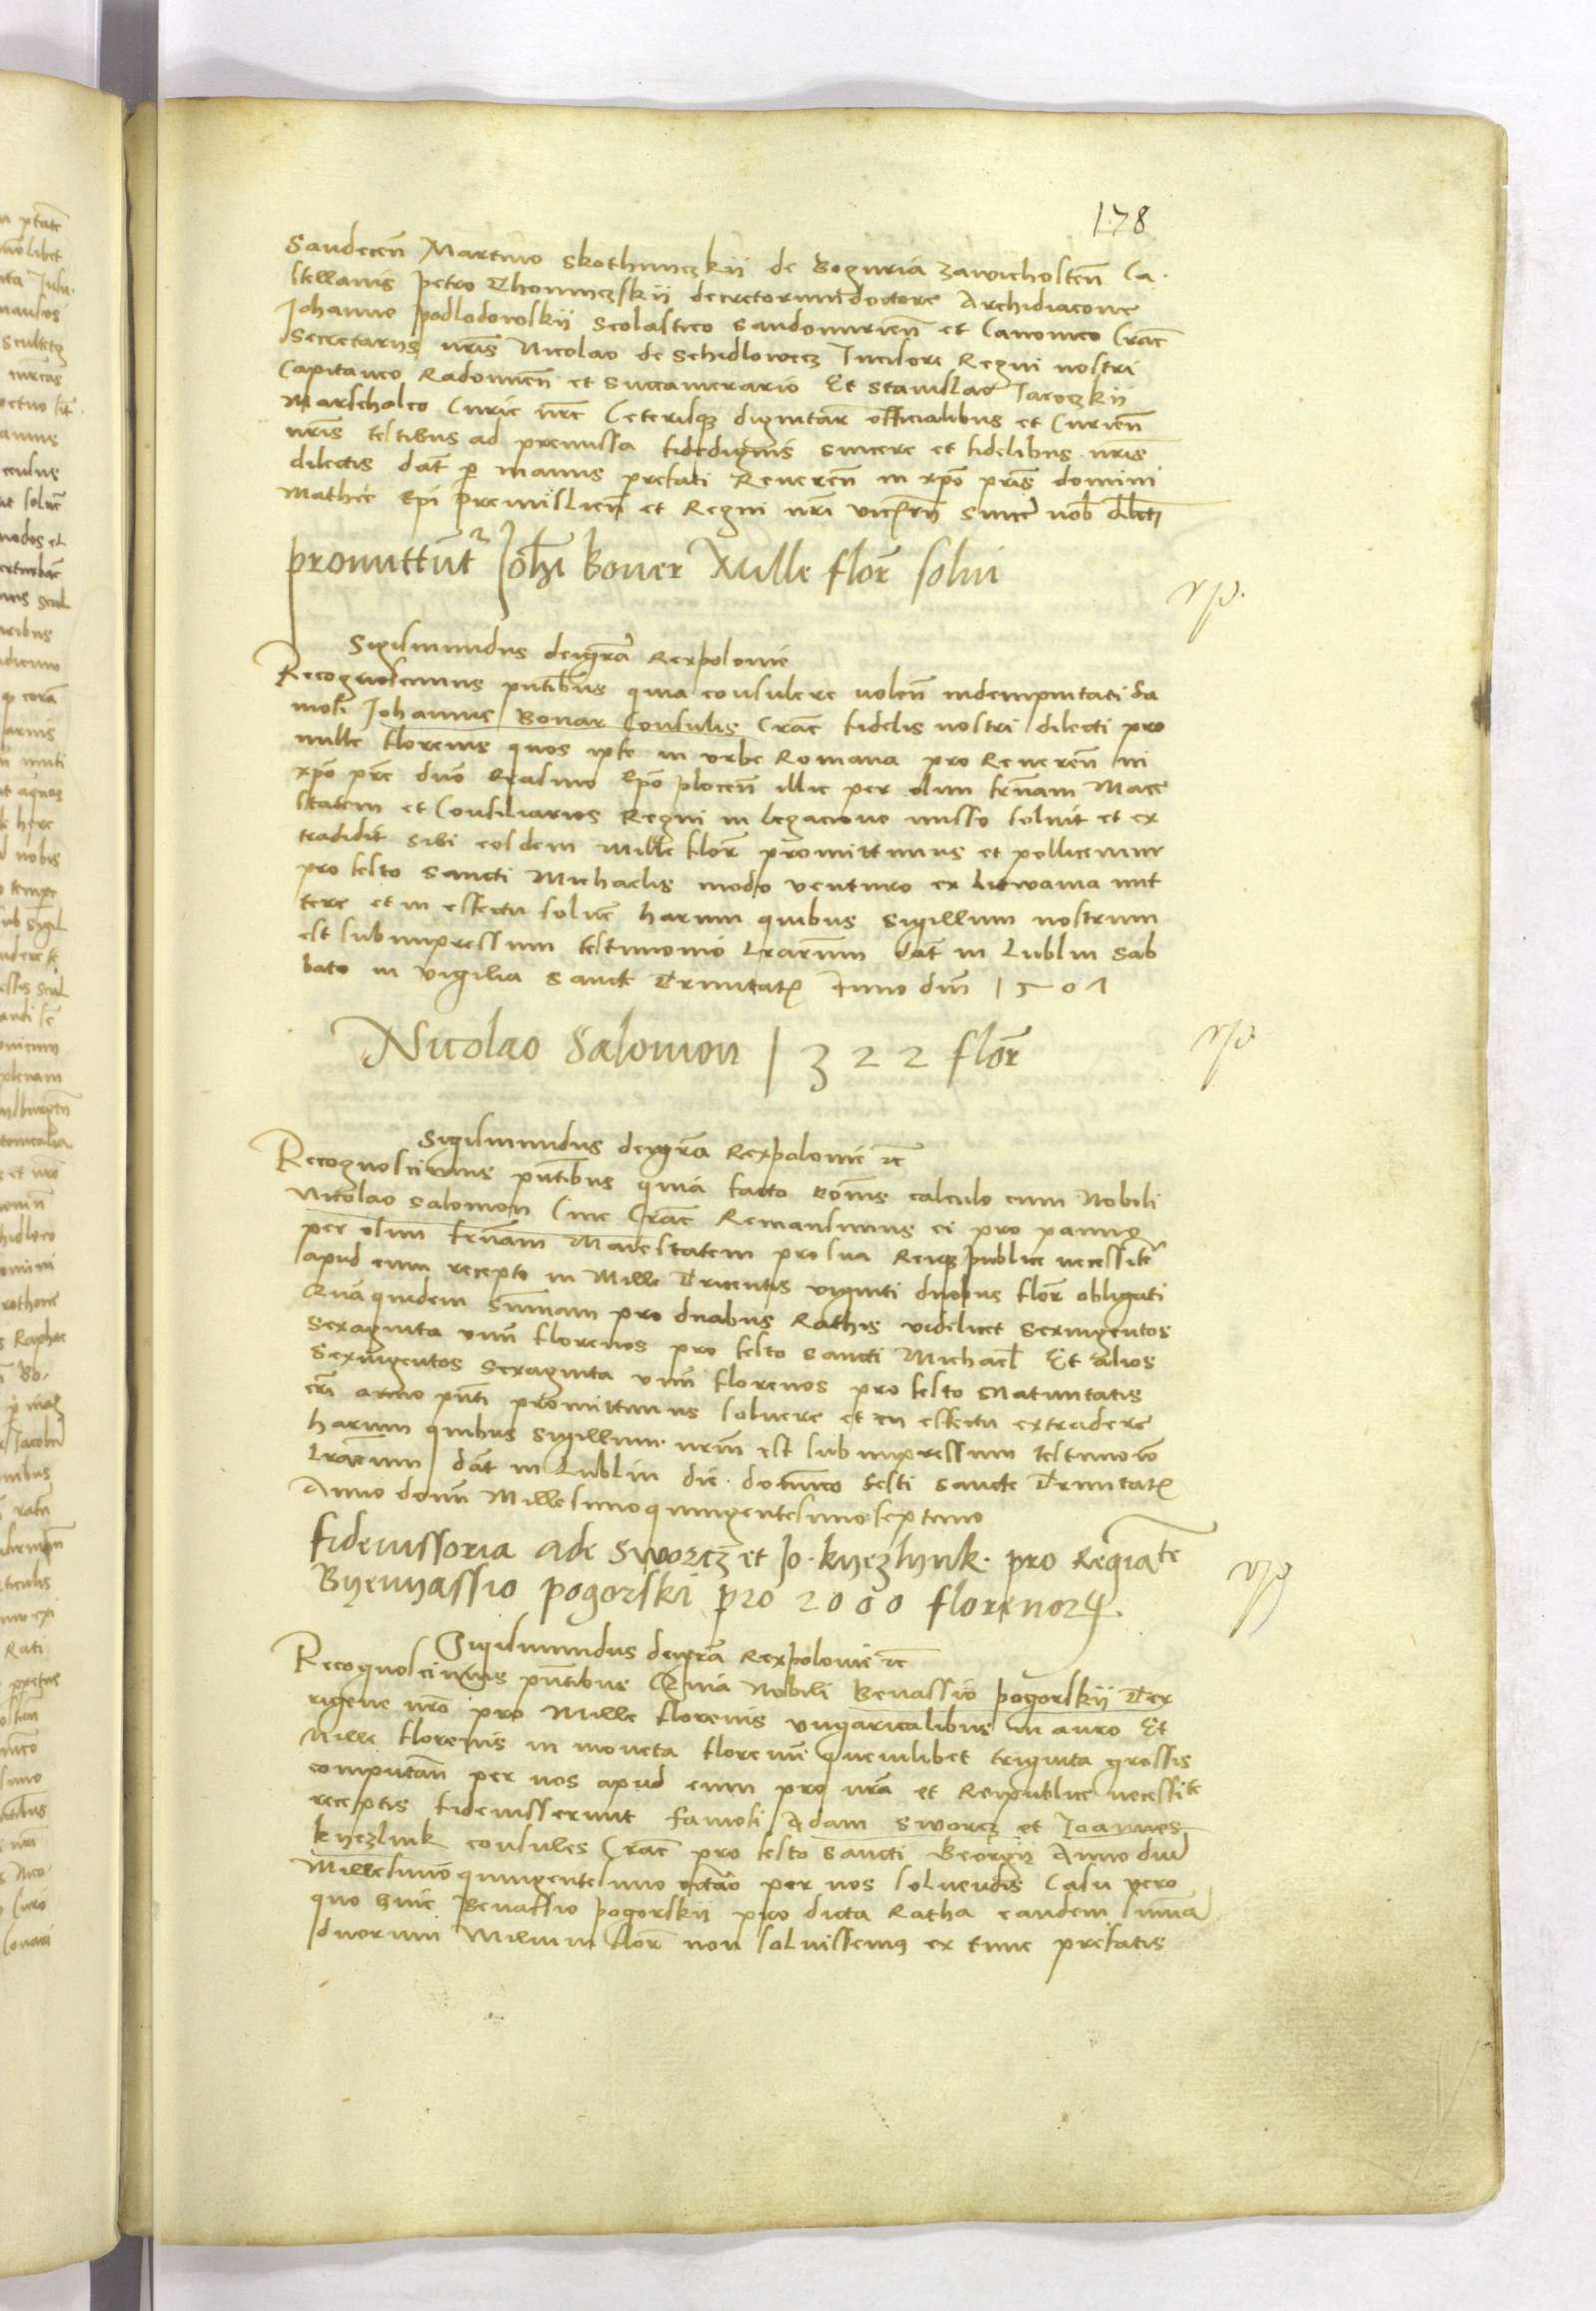 178
Sandecen Martino Skothniczkii de Boguria Zawichosten Ca
stellanis Petro Thomiczskii decretorum doctore Archidiacone
Johanne podlodowskii Scolastico Sandomirien et Canonico Crac
Secretariis nris Nicolao de Schidlowecz Incisore Regni nostri
Capitaneo Radomien et Succamerario Et Stanislao Jaroczkii
Marschalco Curie nre Ceterisque dignitar officialibus et Curien
nris testibus ad premissa fidedignis sincere et fidelibus nris
dilectis dat p manus prefati Reveren in xpo pris domini
Mathie Epi Premislien et Regni nri vicecan sincer nob dilecti
promittunt Johi boner Mille flor solvi
Sigismundus dei gra Rex polonie
Recognoscimus pntibus quia consulere volen indempnitati fa
mosi Johannis Bonar Consulis Crac fidelis nostri dilecti pro
mille florenis quos ipse in urbe Romana pro Reveren in
xpo pre dno Erasmo Epo plocen illic per olim frnam Maie
statem et Consiliarios Regni in legacione misso solvit et ex
tradidit sibi eosdem mille flor promittimus et pollicemur
pro festo Sancti Michaelis modo venturo ex Litwania mit
tere et in effectu solvere harum quibus sigillum nostrum
est subimpressum testimonio lrarum dat in Lublin Sab
bato in vigilia Sancte Trinitatis Anno dni 1507
Nicolao Salomon 1322 flor
Sigismundus dei gra Rex polonie etc
Recognoscimus pntibus quia facto rationis calculo cum Nobili
Nicolao Salomon Cive Crac Remansimus ei pro panno
per olim frnam Maiestatem pro sua Reique publice necessite
apud eum recepto in Mille Tricentis viginti duobus flor obligati
Quam quidem summam pro duabus Rathis videlicet Sexingentos
Sexaginta unum florenos pro festo Sancti Michael Et alios
Sexingentos Sexaginta unum florenos pro festo Nativitatis
cri anno pnti promittimus solvere et in effectu extradere
harum quibus Sigillum nrm est subimpressum testimonio
lrarum dat in Lublin die dominico festi Sancte Trinitatis
Anno domini Millesimo quingentesimo septimo
fideiussoria Ade Sworcz et Jo. kyezlynk. pro Regia te
Byenyassio pogorski pro 2000 florenorum.
Sigismundus dei gra Rex polonie etc
Recognoscimus pntibus Quia Nobili Benassio pogorskii Dex
rigene nro pro Mille florenis ungaricalibus in auro Et
Mille florenis in moneta florenum quemlibet triginta grossis
computan per nos apud eum pro nra et Reipublice necessite
receptis fideiusserunt famosi Adam Sworcz et Joannes
kyezlink consules Crac pro festo Sancti Georgii Anno dni
Millesimo quingentesimo octavo per nos solvendis Casu vero
quo huic Benassio pogorskii pro dicta Ratha eandem summa
duorum Milium flor non solvissemus ex tunc prefatis